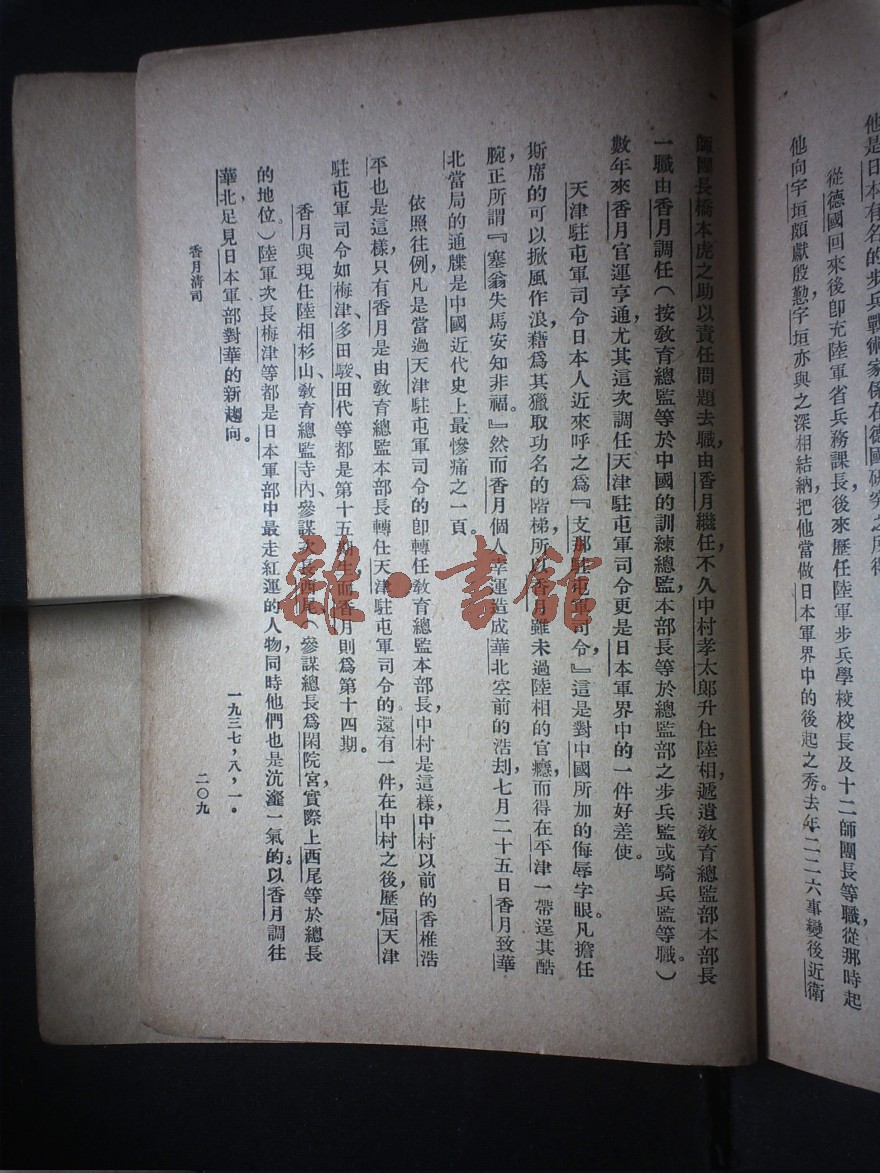 他是日本有名的步兵戰術家係在德國研究之所得
從德國回來後卽充陸軍省兵務課長，後來歷任陸軍步兵學校校長及十二師團長等職從那時起，
他向宇垣頗獻殷懃，宇垣亦與之深相結納，把他當做日本軍界中的後起之秀。去年二二六事變後近衛
師團長橋本虎之助以責任問題去職，由香月繼任，不久中村孝太郞升任陸相，遞遺敎育總監部本部長
一職由香月調任（按敎育總監等於中國的訓練總監，本部長等於總監部之步兵監或騎兵監等職。）
數年來香月官運亨通，尤其這次調任天津駐屯軍司令更是日本軍界中的一件好差使。
天津駐屯軍司令日本人近來呼之爲『支那駐屯軍司令』，這是對中國所加的侮辱字眼。凡擔任
斯席的可以掀風作浪，藉爲其獵取功名的階梯，所以香月雖未過陸相的官癮，而得在平津一帶逞其酷
腕，正所謂『塞翁失馬安知非福。』然而香月個人幸運造成華北空前的浩刦，七月二十五日香月致華
北當局的通牒是中國近代史上最慘痛之一頁。
依照往例，凡是當過天津駐屯軍司令的卽轉任敎育總監本部長，中村是這樣，中村以前的香椎浩
平也是這樣，只有香月是由敎育總監本部長轉任天津駐屯軍司令的。還有一件，在中村之後，歷屆天津
駐屯軍司令如梅津、多田駿、田代等都是第十五期生，而香月則爲第十四期。
香月與現任陸相杉山、敎育總監寺內、參謀次長西尾、（參謀總長爲閑院宮，實際上西尾等於總長
的地位。）陸軍次長梅津等都是日本軍部中最走紅運的人物，同時他們也是沆瀣一氣的。以香月調往
華北，足見日本軍部對華的新趨向。
一九三七，八，一。
香月淸司
二〇九
雜·書館